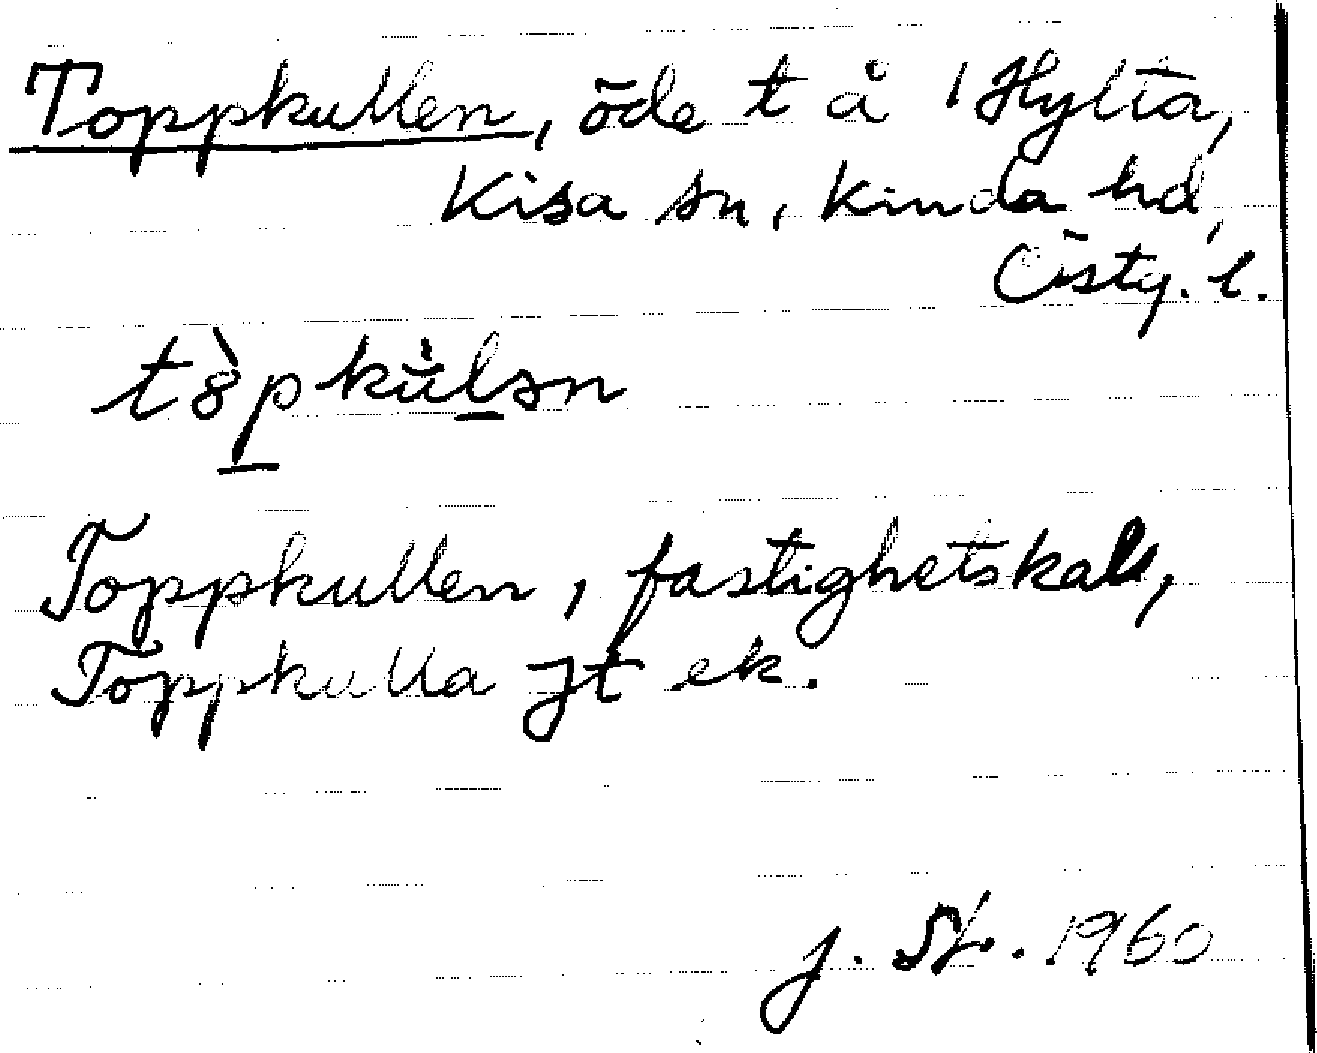 Toppkullen, öde t å 1 Hylta,
Kisa sn, Kinda hd,
Östg. l.
Toppkullen, fastighetskall,
Toppkulla Jt ek.
J. St. 1960